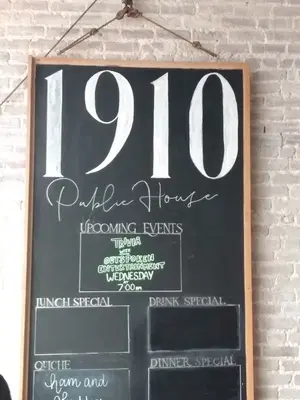 1910
Public House
UPCOMING EVENTS
TRIVIA
OUTSPOKEN
ENTERTAINMENT
WEDNESDAY
7:00
LUNCH SPECIAL
DRINK SPECIAL
QUICHE
DINNER SPECIAL
ham and